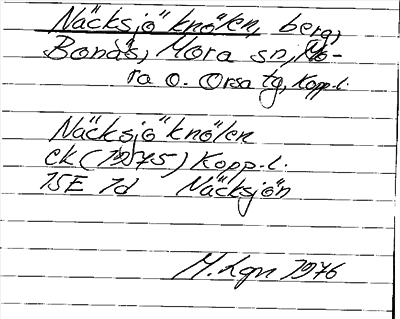 Näcksjöknölen, berg,
Bonäs, Mora sn, Mo-
ra o. Orsa tg, Kopp.l.
Näcksjöknölen
ek (1975) Kopp.l.
15E 1d Näcksjön
M. Lgn 1976